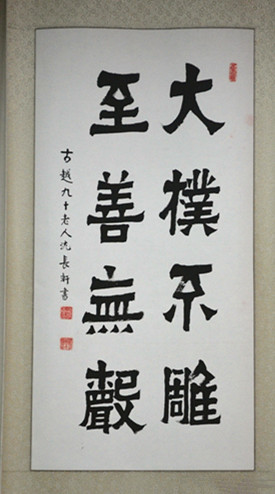 大樸不雕
至善無聲
古越九十老人沈長軒書